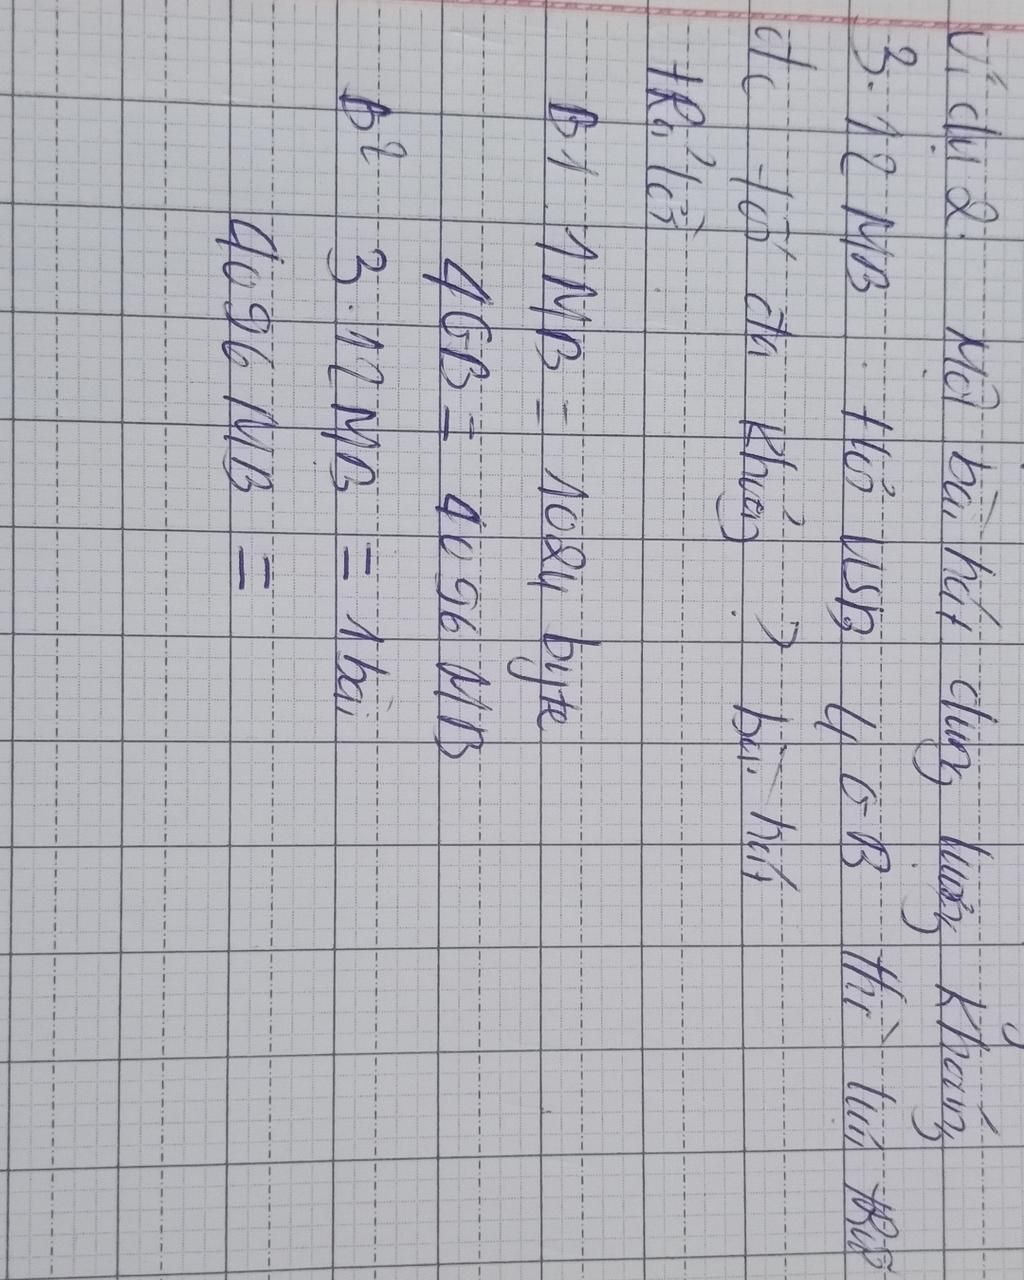 Ví dụ 2. Một bài hát dung lượng khoảng
3.12 MB. Hỏi USB 4 GB thì lưu trữ
đc tối đa khoảng ? bài hát
trả lời
B1 1MB = 1024 byte
4GB = 4096 MB
B2 3.12 MB = 1 bài
4096 MB =